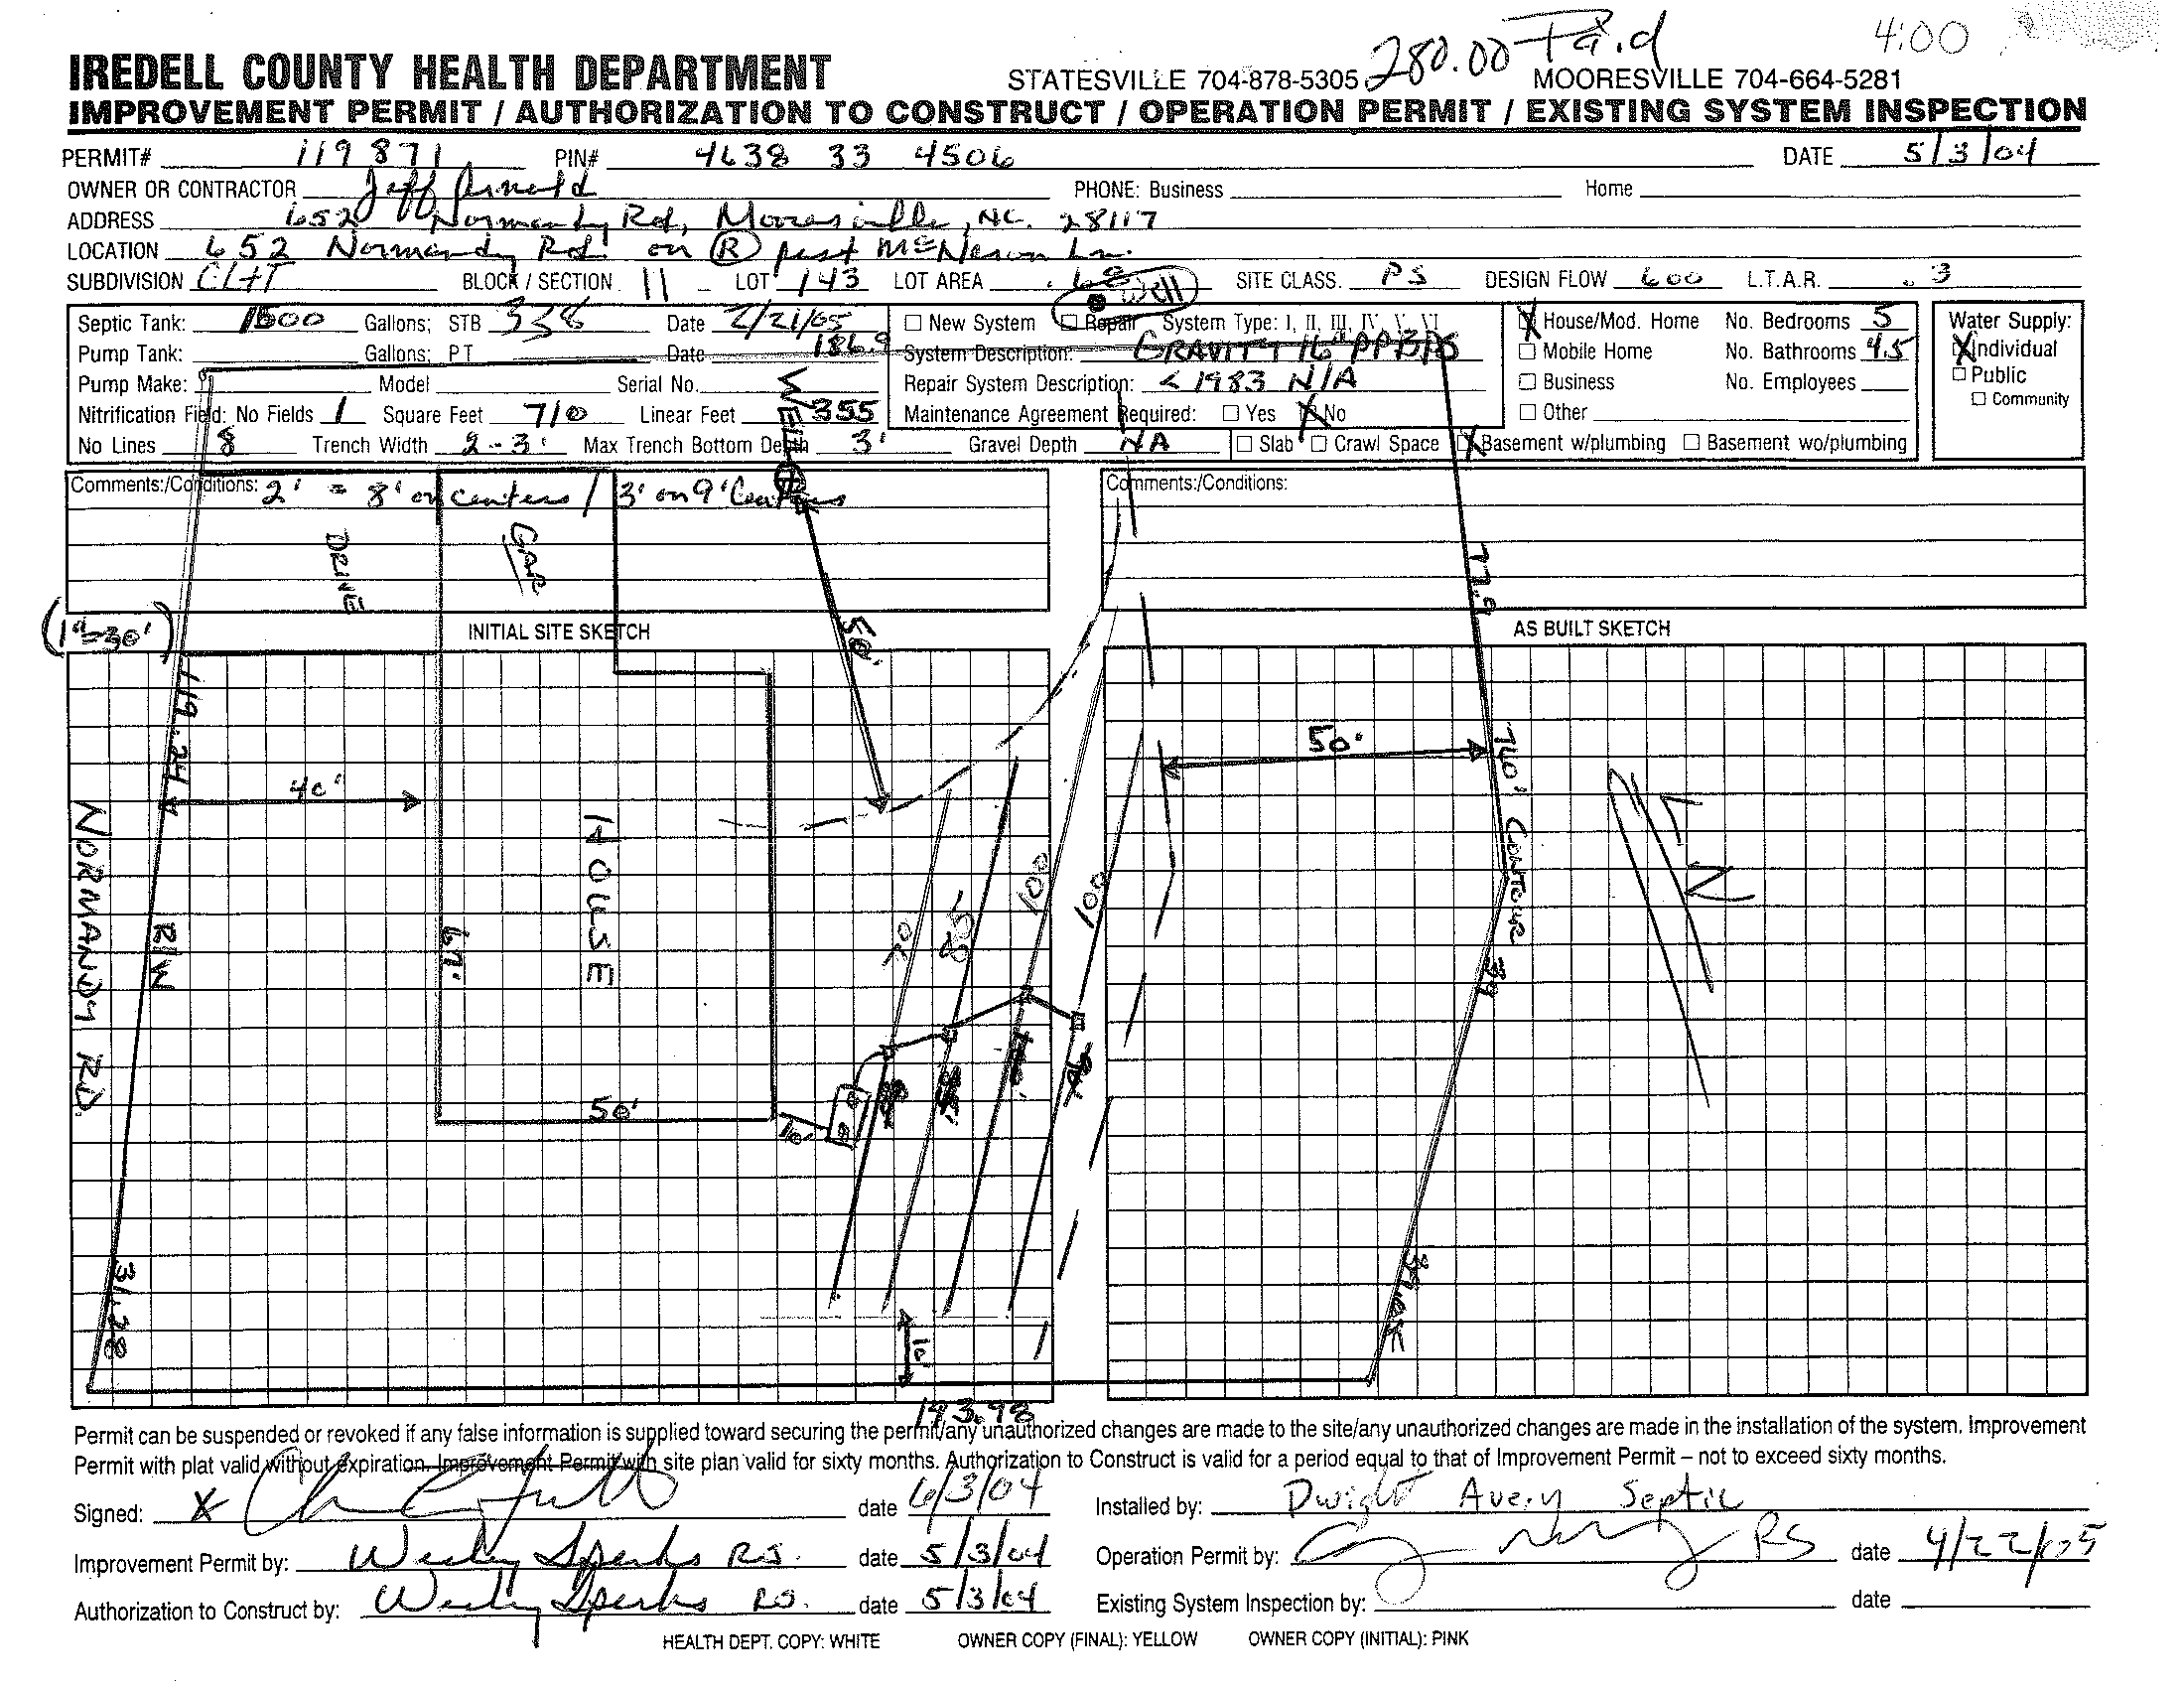 280.00 Paid 4:00
IREDELL COUNTY HEALTH DEPARTMENT STATESVILLE 704-878-5305 MOORESVILLE 704-664-5281
IMPROVEMENT PERMIT / AUTHORIZATION TO CONSTRUCT / OPERATION PERMIT / EXISTING SYSTEM INSPECTION
PERMIT# 119871 PIN# 4638 33 4506 DATE 5/3/04
OWNER OR CONTRACTOR Jeff Arnold PHONE: Business Home
ADDRESS 652 Normandy Rd, Mooresville, NC. 28117
LOCATION 652 Normandy Rd. on (R) past Ln.
SUBDIVISION CL+T BLOCK / SECTION 11 LOT 143 LOT AREA .68 SITE CLASS. PS DESIGN FLOW 600 L.T.A.R. .3
Well
Septic Tank: 1500 Gallons; STB 338 Date 2/21/05 □ New System □ Repair System Type: I, II, III, IV, V, VI X House/Mod. Home No. Bedrooms 5 Water Supply:
Pump Tank: Gallons; PT Date 186.9 System Description: GRAVITY 16" PPBPS □ Mobile Home No. Bathrooms 4.5 X Individual
Pump Make: Model Serial No. Repair System Description: < 1983 N/A □ Business No. Employees □ Public
Nitrification Field: No Fields 1 Square Feet 710 Linear Feet 355 Maintenance Agreement Required: □ Yes X No □ Other □ Community
No Lines 8 Trench Width 2-3' Max Trench Bottom Depth 3' Gravel Depth NA □ Slab □ Crawl Space X Basement w/plumbing □ Basement wo/plumbing
WELL
Comments:/Conditions: 2' = 8' on centers / 3' on 9' Centers Comments:/Conditions:
DRIVE GAR
77.9
(1"=30') INITIAL SITE SKETCH AS BUILT SKETCH
50'
119.24
50'
760' CONTOUR
40'
NORMANDY RD
R/W
HOUSE
67'
70 85 100 100
N
39
50'
10'
31.38
10'
193.98
Permit can be suspended or revoked if any false information is supplied toward securing the permit/any unauthorized changes are made to the site/any unauthorized changes are made in the installation of the system. Improvement
Permit with plat valid without expiration. Improvement Permit with site plan valid for sixty months. Authorization to Construct is valid for a period equal to that of Improvement Permit – not to exceed sixty months.
Signed: X date 6/3/04 Installed by: Dwight Avery Septic
Improvement Permit by: Wesley Sperks RS. date 5/3/04 Operation Permit by: RS date 4/22/05
Authorization to Construct by: Wesley Sperks RS. date 5/3/04 Existing System Inspection by: date
HEALTH DEPT. COPY: WHITE OWNER COPY (FINAL): YELLOW OWNER COPY (INITIAL): PINK